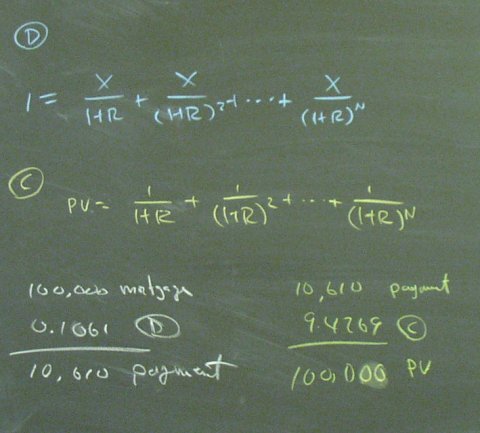 D
1 = X/(1+R) + X/(1+R)^2 + ... + X/(1+R)^N
C
PV = 1/(1+R) + 1/(1+R)^2 + ... + 1/(1+R)^N
100,000 mortgage
0.1061 D
10,610 payment
10,610 payment
9.4269 C
100,000 PV